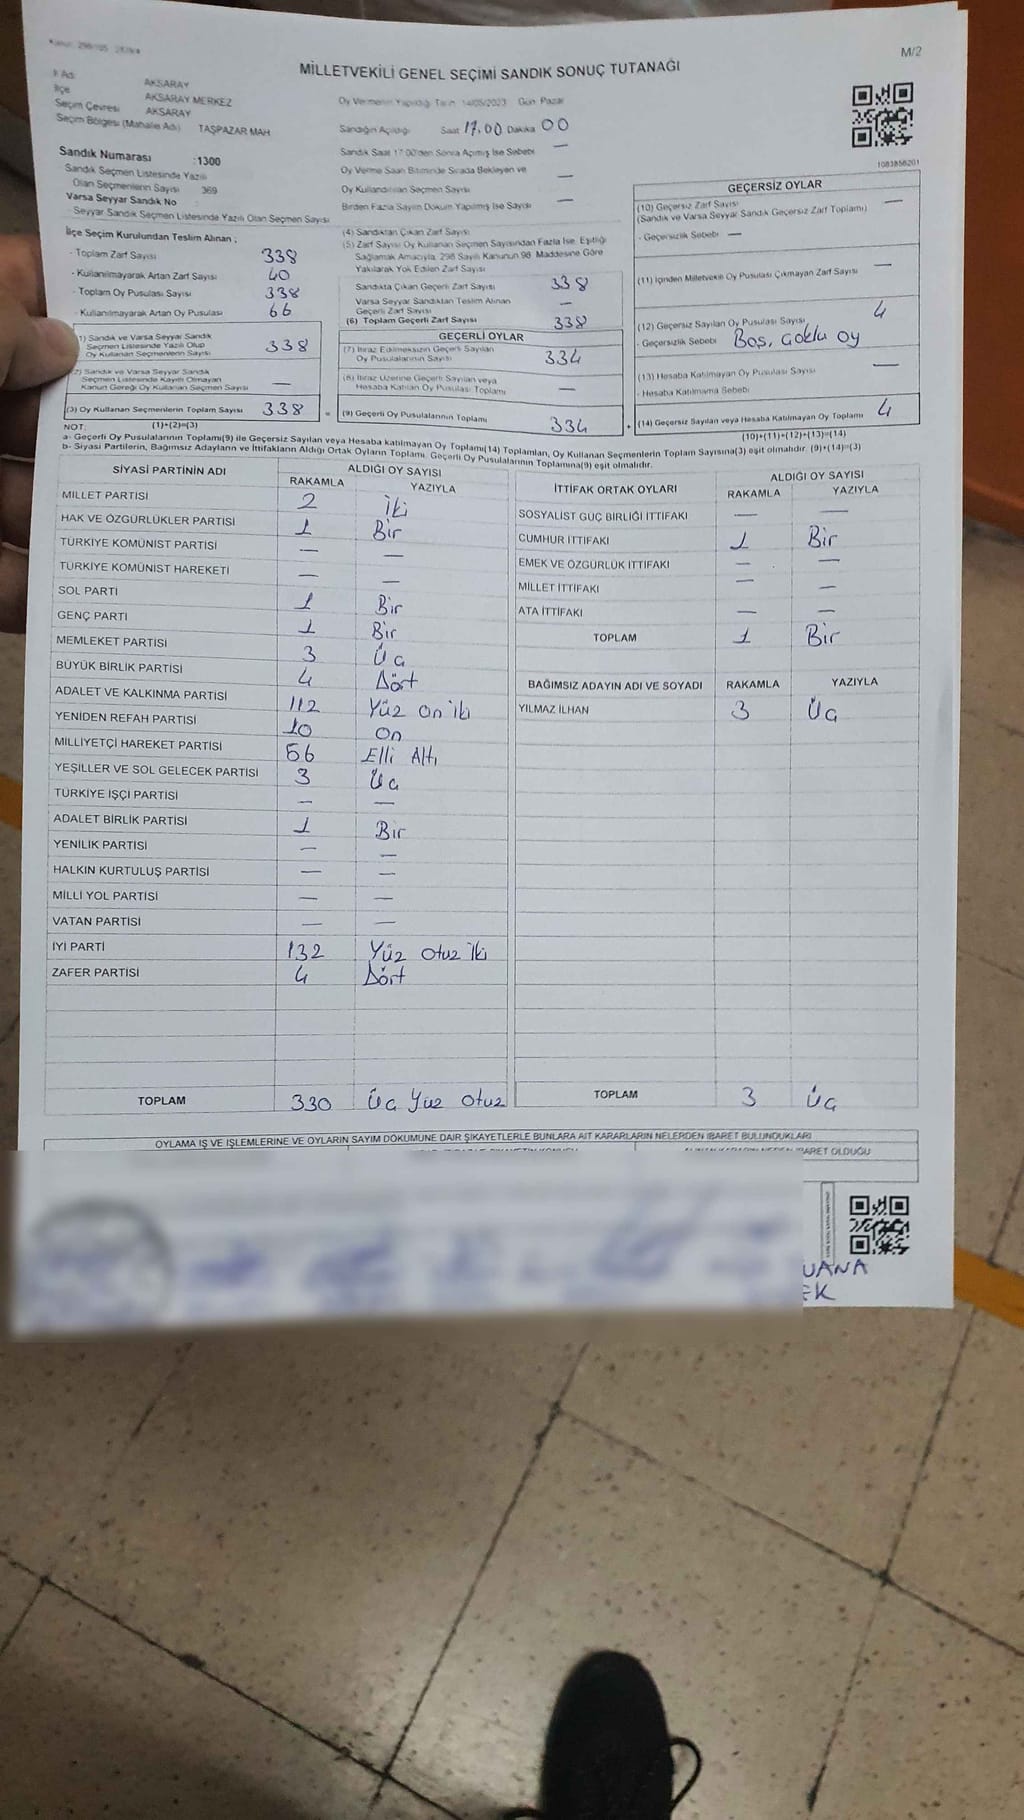 M/2
MİLLETVEKİLİ GENEL SEÇİMİ SANDIK SONUÇ TUTANAĞI
İl Adı AKSARAY
İlçe AKSARAY MERKEZ
Seçim Çevresi AKSARAY
Seçim Bölgesi (Mahalle Adı) TAŞPAZAR MAH
Sandık Numarası :1300
Sandık Seçmen Listesinde Yazılı
Olan Seçmenlerin Sayısı 369
Varsa Seyyar Sandık No
Seyyar Sandık Seçmen Listesinde Yazılı Olan Seçmen Sayısı
Oy Vermenin Yapıldığı Tarih 14/05/2023 Gün Pazar
Sandığın Açıldığı Saat 17.00 Dakika 00
Sandık Saat 17:00'den Sonra Açılmış İse Sebebi —
Oy Verme Saati Bitiminde Sırada Bekleyen ve
Oy Kullandırılan Seçmen Sayısı —
Birden Fazla Sayım Döküm Yapılmış İse Sayısı —
1083856201
İlçe Seçim Kurulundan Teslim Alınan ;
- Toplam Zarf Sayısı 338
- Kullanılmayarak Artan Zarf Sayısı 40
- Toplam Oy Pusulası Sayısı 338
- Kullanılmayarak Artan Oy Pusulası 66
(1) Sandık ve Varsa Seyyar Sandık
Seçmen Listesinde Yazılı Olup
Oy Kullanan Seçmenlerin Sayısı 338
(2) Sandık ve Varsa Seyyar Sandık
Seçmen Listesinde Kayıtlı Olmayan
Kanun Gereği Oy Kullanan Seçmen Sayısı —
(3) Oy Kullanan Seçmenlerin Toplam Sayısı 338
(1)+(2)=(3)
(4) Sandıktan Çıkan Zarf Sayısı
(5) Zarf Sayısı Oy Kullanan Seçmen Sayısından Fazla İse, Eşitliği
Sağlamak Amacıyla, 298 Sayılı Kanunun 98. Maddesine Göre
Yakılarak Yok Edilen Zarf Sayısı
Sandıkta Çıkan Geçerli Zarf Sayısı 338
Varsa Seyyar Sandıktan Teslim Alınan
Geçerli Zarf Sayısı —
(6) Toplam Geçerli Zarf Sayısı 338
GEÇERLİ OYLAR
(7) İtiraz Edilmeksizin Geçerli Sayılan
Oy Pusulalarının Sayısı 334
(8) İtiraz Üzerine Geçerli Sayılan veya
Hesaba Katılan Oy Pusulası Toplamı —
= (9) Geçerli Oy Pusulalarının Toplamı 334
GEÇERSİZ OYLAR
(10) Geçersiz Zarf Sayısı —
(Sandık ve Varsa Seyyar Sandık Geçersiz Zarf Toplamı)
- Geçersizlik Sebebi —
(11) İçinden Milletvekili Oy Pusulası Çıkmayan Zarf Sayısı —
(12) Geçersiz Sayılan Oy Pusulası Sayısı 4
- Geçersizlik Sebebi Boş, Çoklu oy
(13) Hesaba Katılmayan Oy Pusulası Sayısı —
- Hesaba Katılmama Sebebi
+ (14) Geçersiz Sayılan veya Hesaba Katılmayan Oy Toplamı 4
(10)+(11)+(12)+(13)=(14)
NOT:
a- Geçerli Oy Pusulalarının Toplamı(9) ile Geçersiz Sayılan veya Hesaba katılmayan Oy Toplamı(14) Toplamları, Oy Kullanan Seçmenlerin Toplam Sayısına(3) eşit olmalıdır. (9)+(14)=(3)
b- Siyasi Partilerin, Bağımsız Adayların ve İttifakların Aldığı Ortak Oyların Toplamı, Geçerli Oy Pusulalarının Toplamına(9) eşit olmalıdır.
SİYASİ PARTİNİN ADI ALDIĞI OY SAYISI
RAKAMLA YAZIYLA
MİLLET PARTİSİ 2 İki
HAK VE ÖZGÜRLÜKLER PARTİSİ 1 Bir
TÜRKİYE KOMÜNİST PARTİSİ — —
TÜRKİYE KOMÜNİST HAREKETİ — —
SOL PARTİ 1 Bir
GENÇ PARTİ 1 Bir
MEMLEKET PARTİSİ 3 Üç
BÜYÜK BİRLİK PARTİSİ 4 Dört
ADALET VE KALKINMA PARTİSİ 112 Yüz on iki
YENİDEN REFAH PARTİSİ 10 on
MİLLİYETÇİ HAREKET PARTİSİ 56 Elli Altı
YEŞİLLER VE SOL GELECEK PARTİSİ 3 Üç
TÜRKİYE İŞÇİ PARTİSİ — —
ADALET BİRLİK PARTİSİ 1 Bir
YENİLİK PARTİSİ — —
HALKIN KURTULUŞ PARTİSİ — —
MİLLİ YOL PARTİSİ — —
VATAN PARTİSİ — —
İYİ PARTİ 132 Yüz otuz iki
ZAFER PARTİSİ 4 Dört
TOPLAM 330 Üç Yüz otuz
İTTİFAK ORTAK OYLARI ALDIĞI OY SAYISI
RAKAMLA YAZIYLA
SOSYALİST GÜÇ BİRLİĞİ İTTİFAKI — —
CUMHUR İTTİFAKI 1 Bir
EMEK VE ÖZGÜRLÜK İTTİFAKI — —
MİLLET İTTİFAKI — —
ATA İTTİFAKI — —
TOPLAM 1 Bir
BAĞIMSIZ ADAYIN ADI VE SOYADI RAKAMLA YAZIYLA
YILMAZ İLHAN 3 Üç
TOPLAM 3 Üç
OYLAMA İŞ VE İŞLEMLERİNE VE OYLARIN SAYIM DÖKÜMÜNE DAİR ŞİKAYETLERLE BUNLARA AİT KARARLARIN NELERDEN İBARET BULUNDUKLARI
İBARET OLDUĞU
UANA
EK